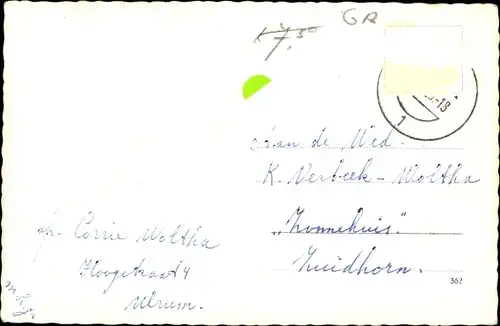 K 7,50
GR
-18
1
aan de Wed.
K. Verbeek-Woltha
„Zonnehuis".
Zuidhorn.
362
fr. Corrie Woltha
Hoogstraat 4
Ulrum.